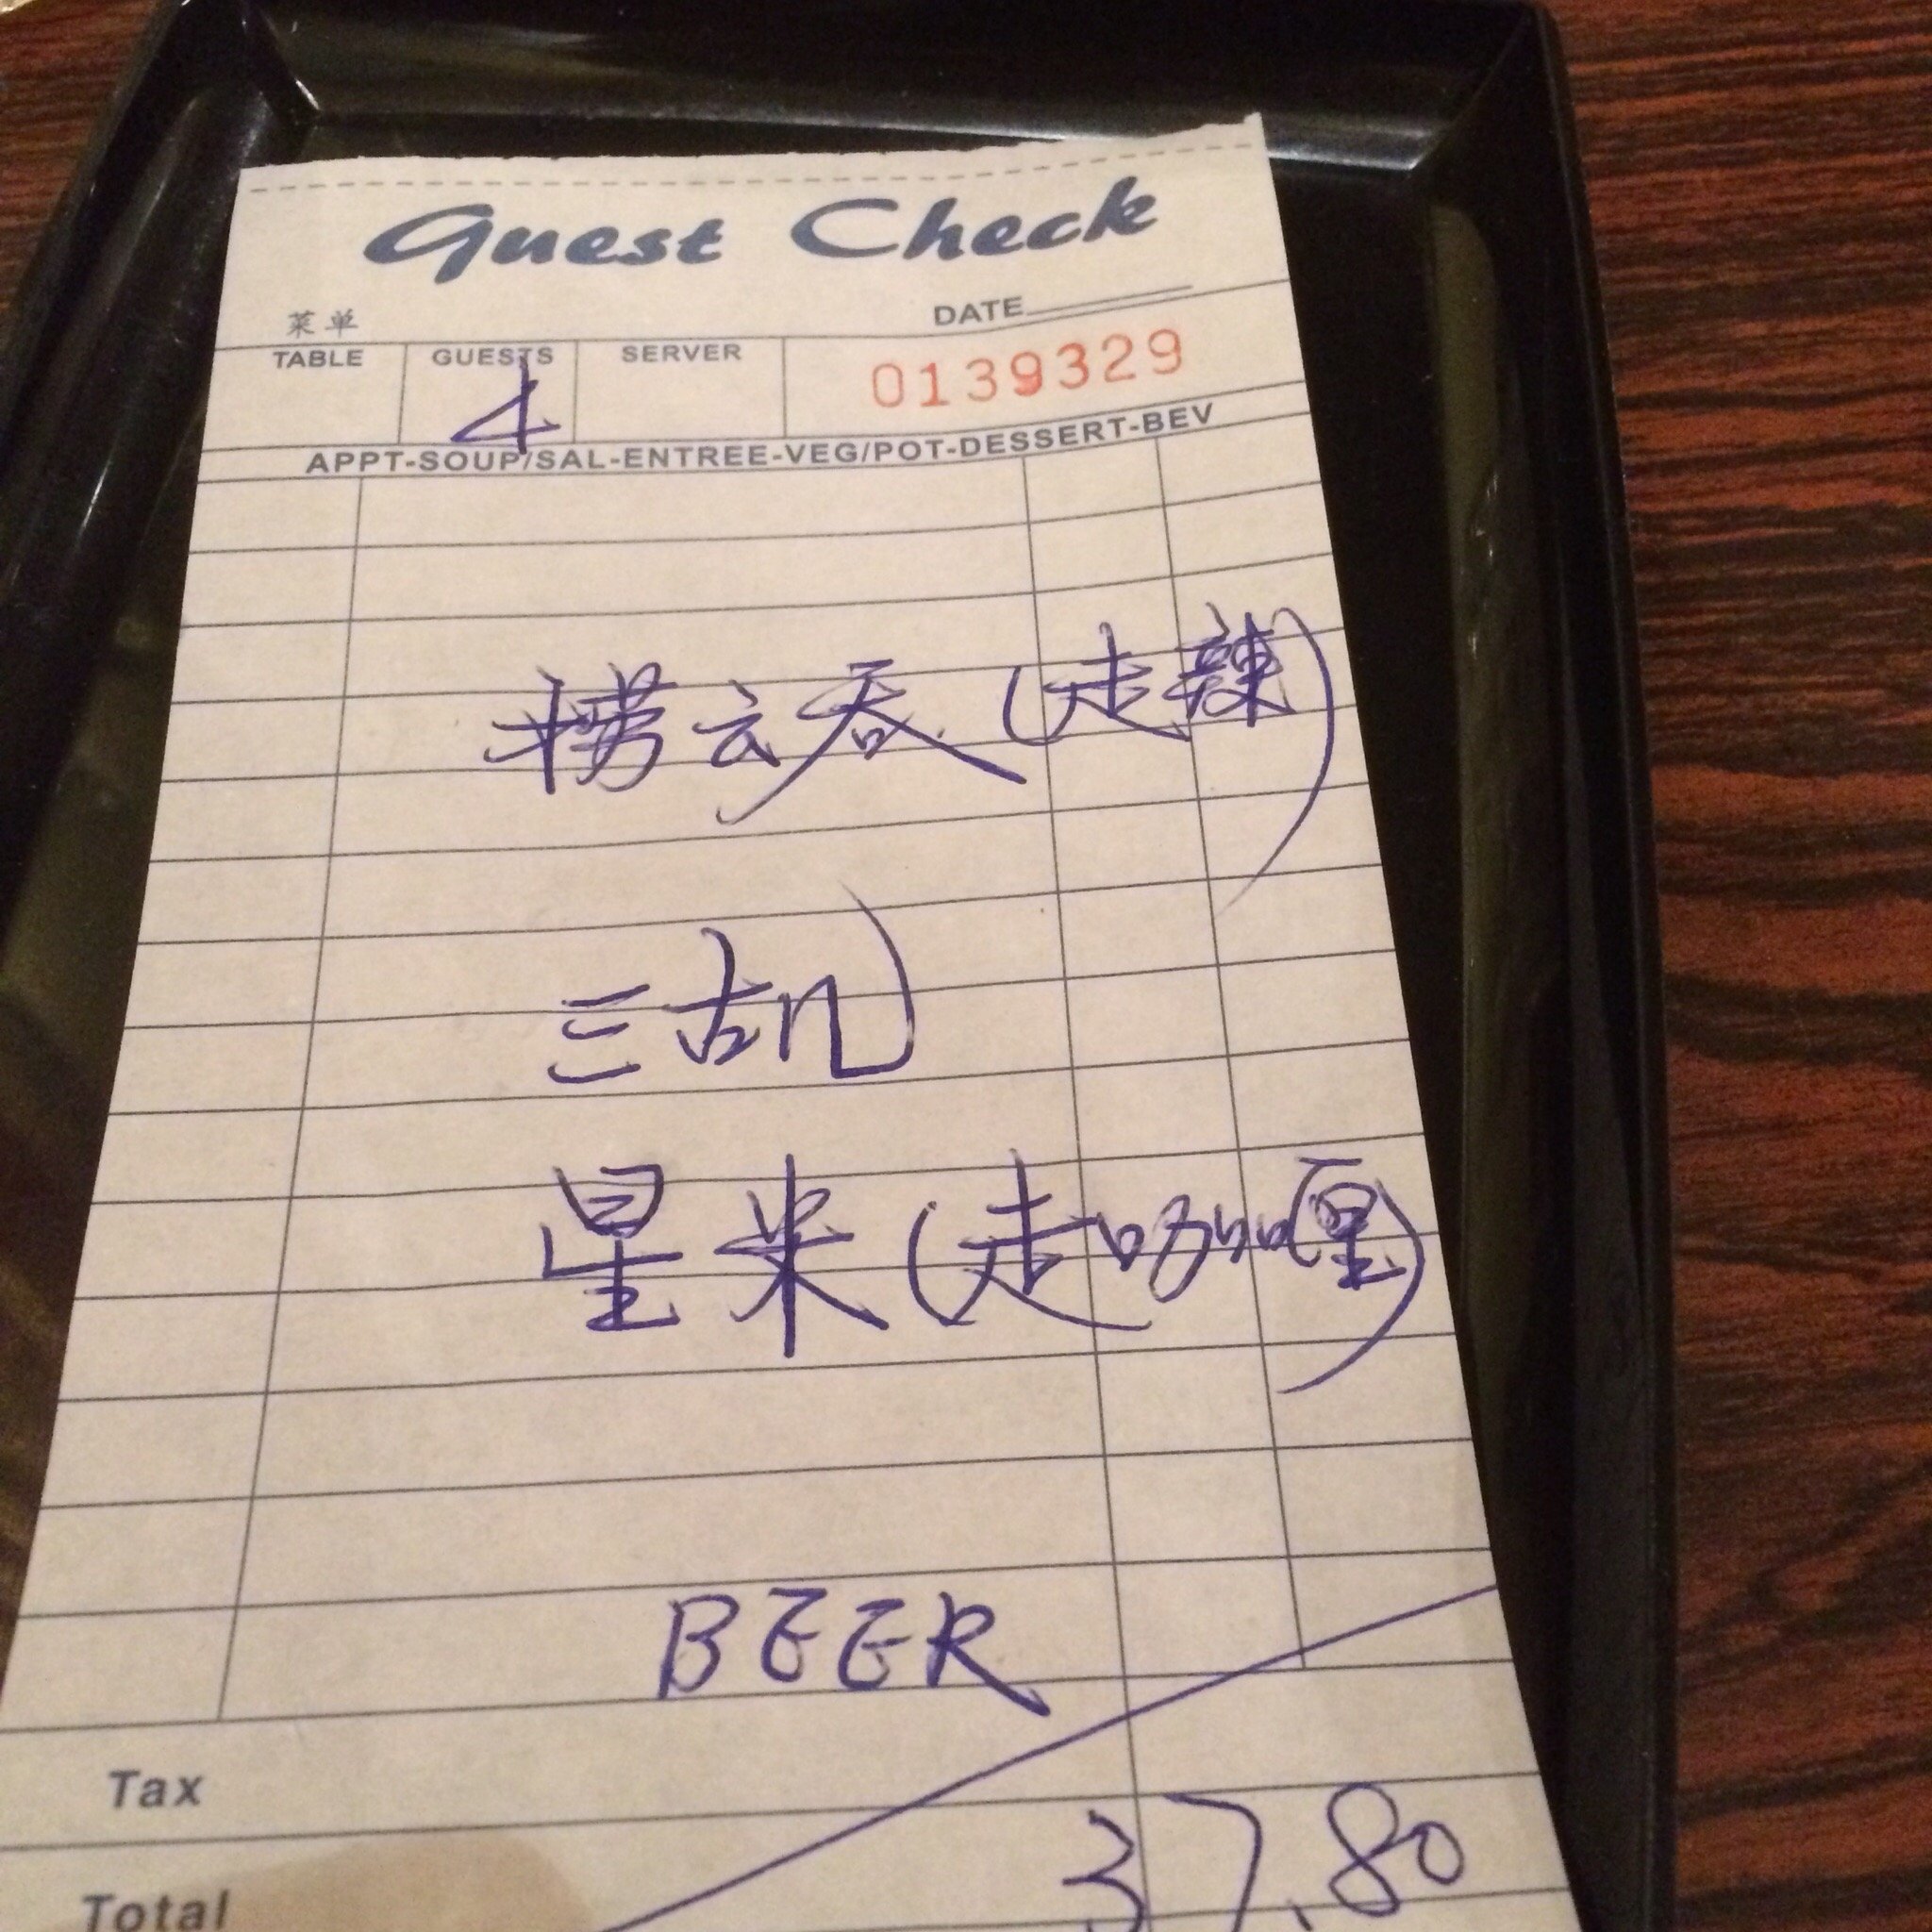 Guest Check
菜单
DATE
TABLE GUESTS SERVER 0139329
4
APPT-SOUP/SAL-ENTREE-VEG/POT-DESSERT-BEV
捞云吞(走辣)
三古
星米(走咖喱)
BEER
Tax
37.80
Total